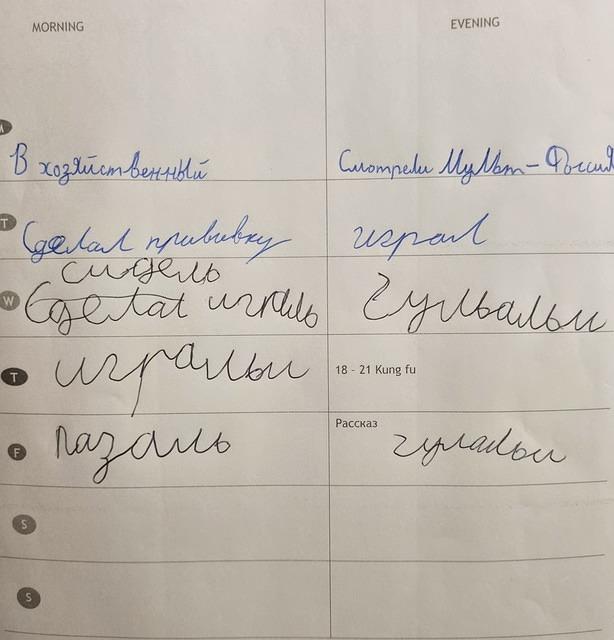 MORNING EVENING
M
В хозяйственный Смотрели Мульт-Россия
T
Сделал прививку играл
сидель
W
Сделаl играль гульальи
T
игральи 18 - 21 Kung fu
F
Рассказ
лазаль гулальи
S
S